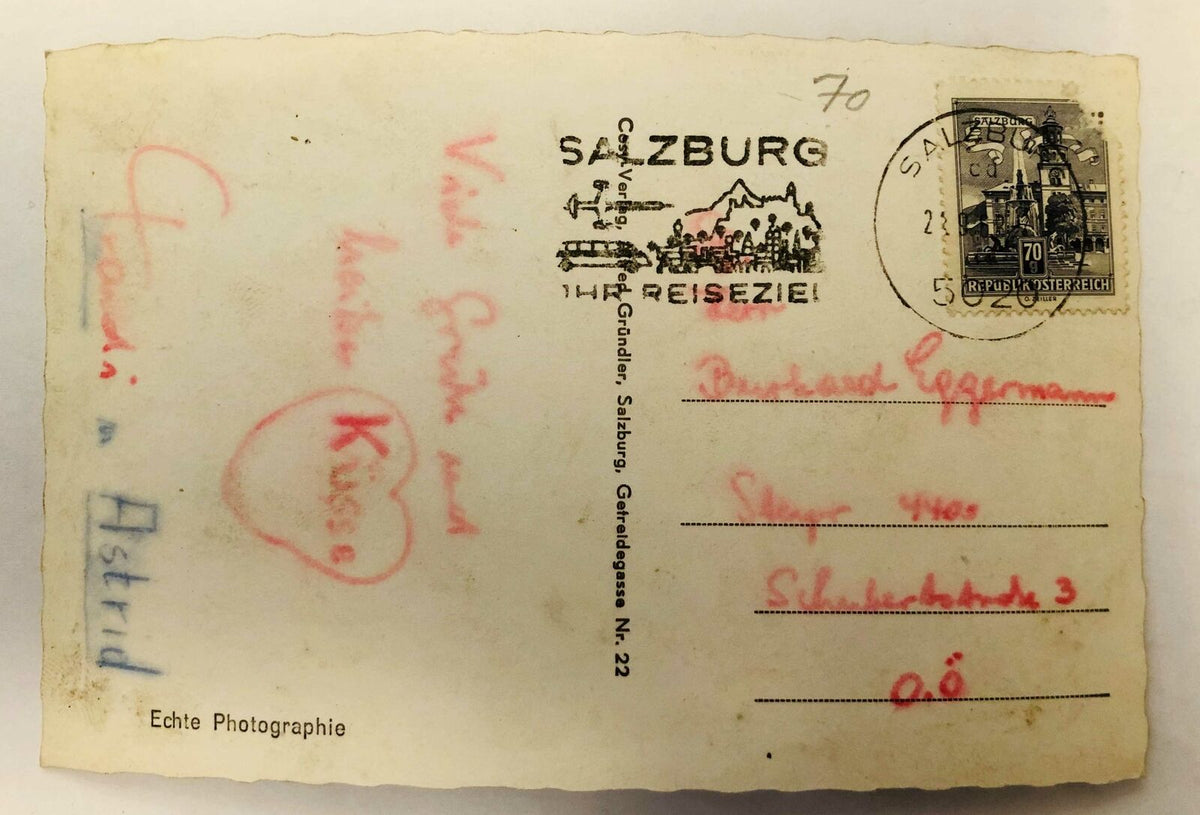 Viele Grüße und
Küsse
Astrid
Echte Photographie
Verlag, Gründler, Salzburg, Getreidegasse Nr. 22
70
SALZBURG
IHR REISEZIEL
SALZBURG
cd
5020
SALZBURG
70
g
REPUBLIK ÖSTERREICH
O. ZEILLER
Burkhard Eggermann
Steyr 4400
Schubertstraße 3
O.Ö